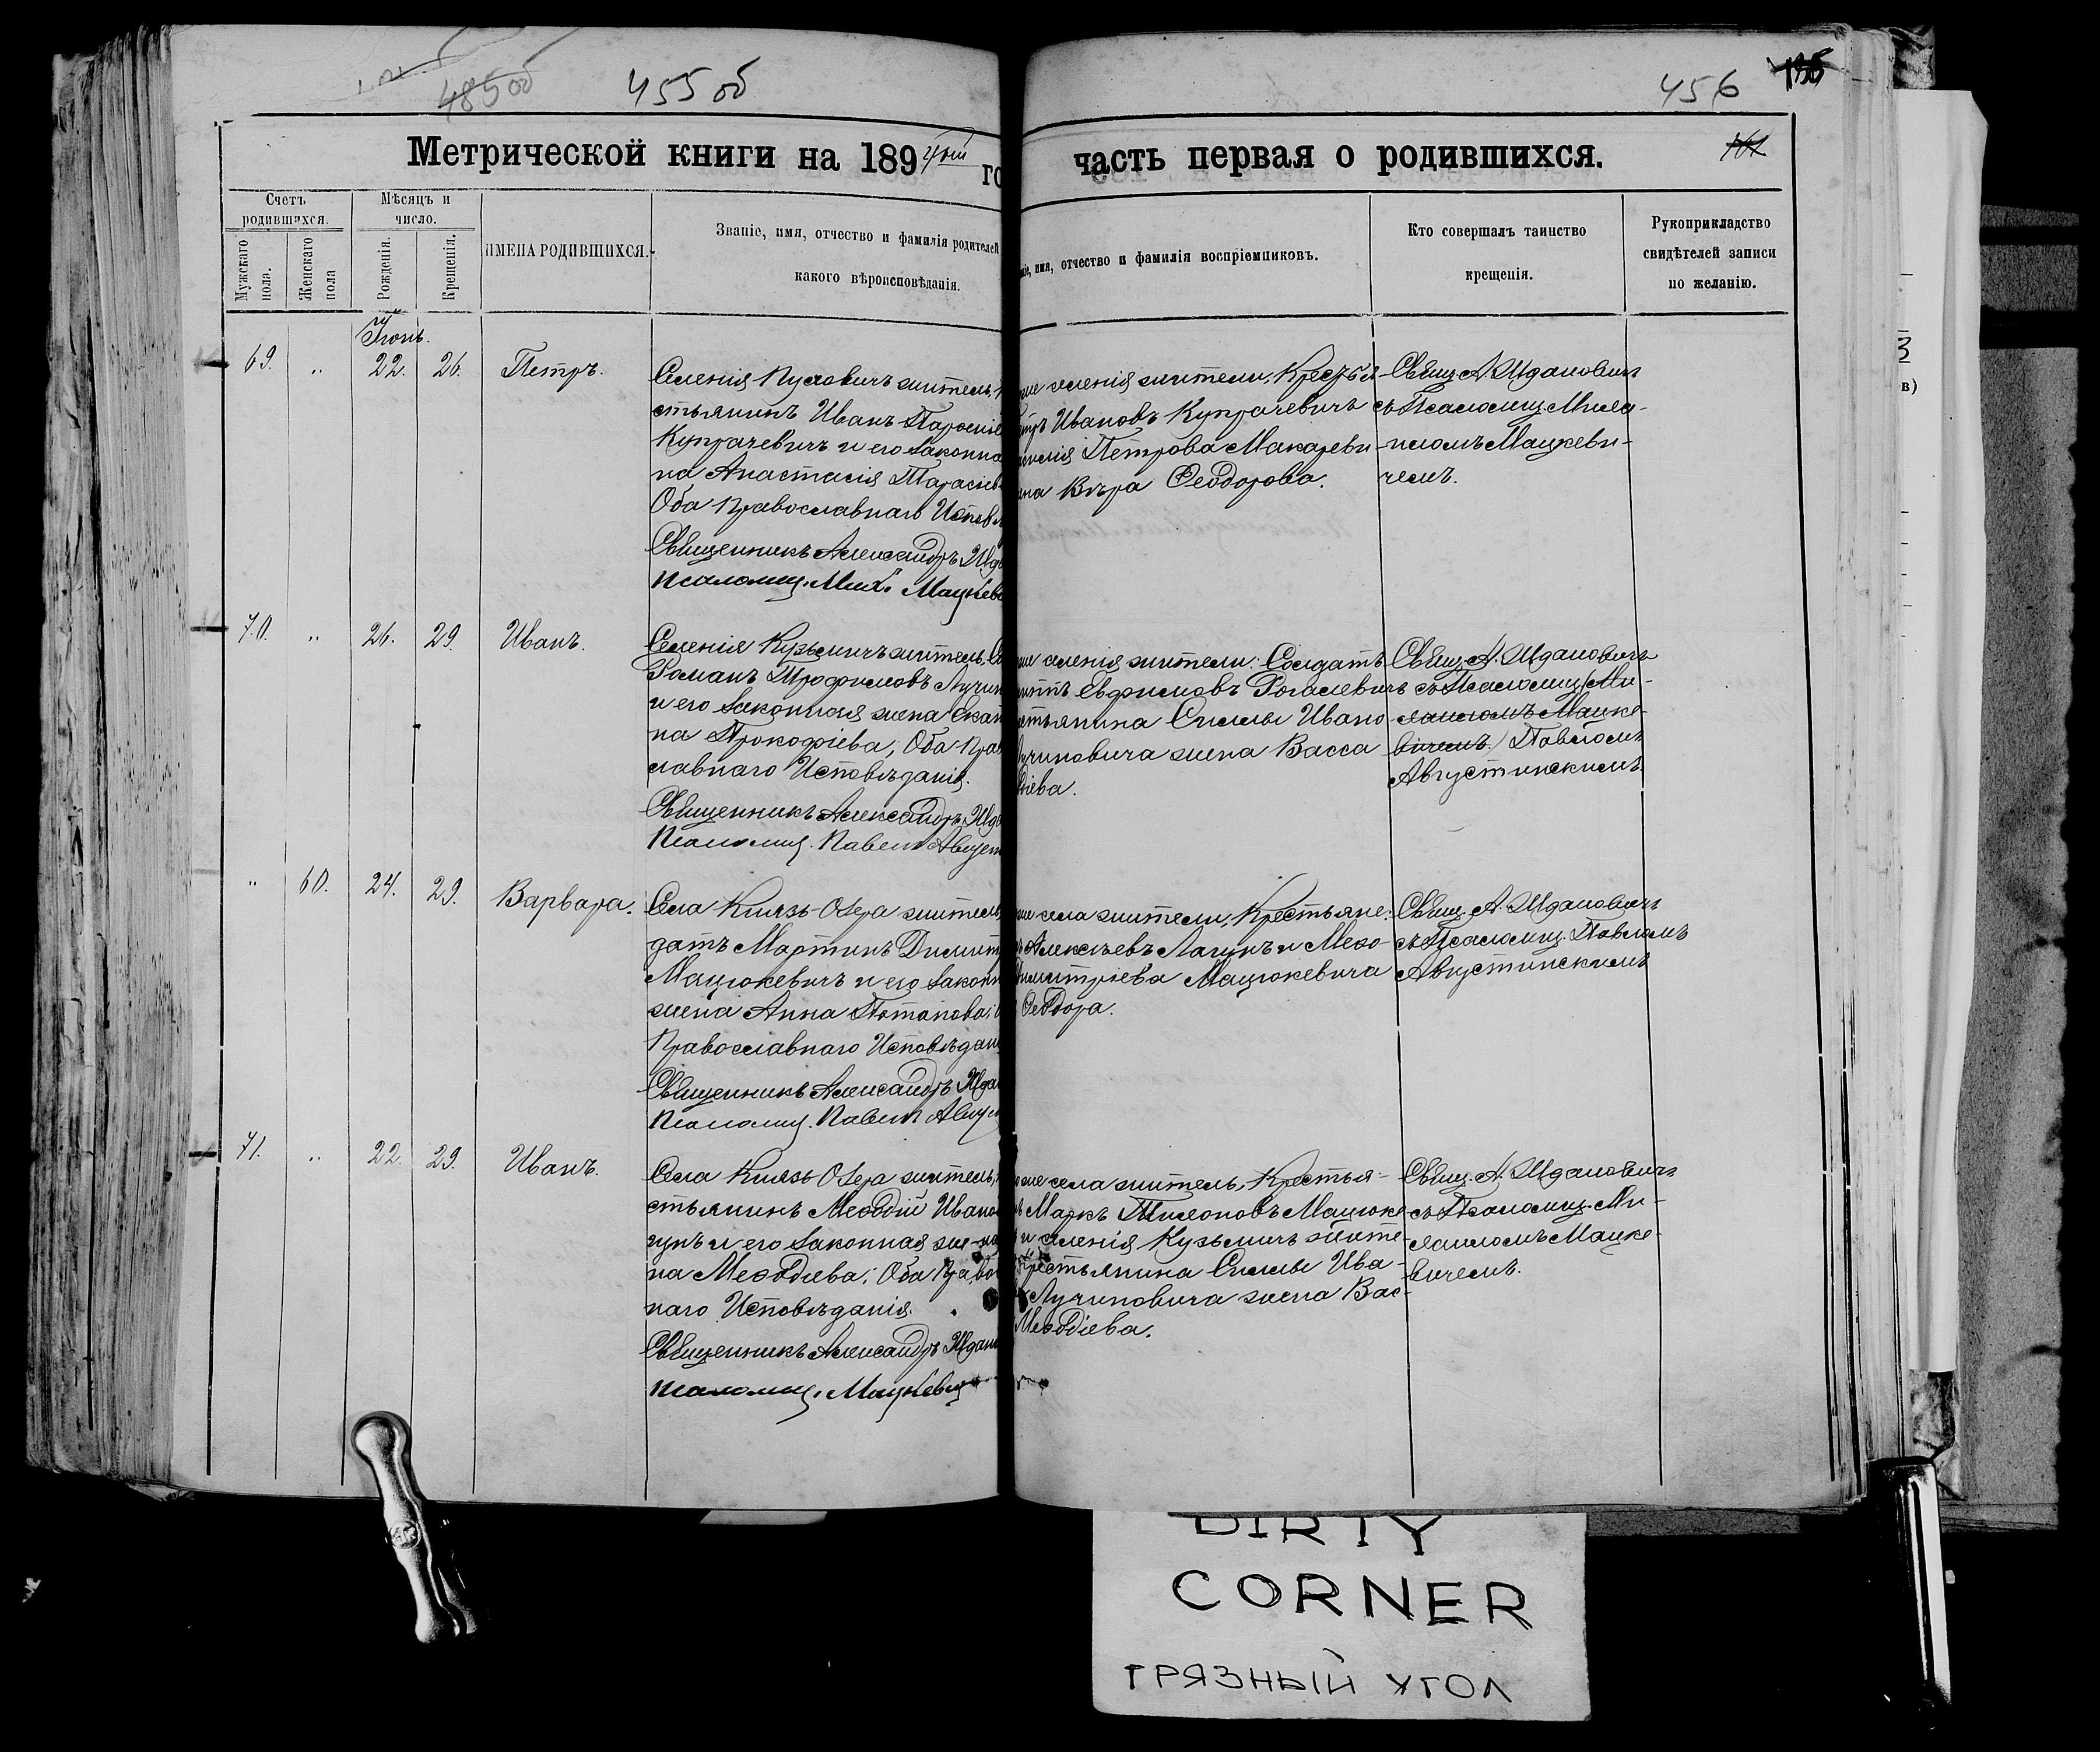 485об 455об
456
Метрической книги на 189 го
часть первая о родившихся.
Счетъ родившихся.
Мѣсяцъ и число.
Мужскаго пола.
Женскаго пола
Рожденія.
Крещенія.
ИМЕНА РОДИВШИХСЯ.
Званіе, имя, отчество и фамилія родителей
какого вѣроисповѣданія.
имя, отчество и фамилія воспріемниковъ.
Кто совершалъ таинство
крещенія.
Рукоприкладство
свидѣтелей записи
по желанію.
69. " 22. 26. Петръ.
Селенія житель,
стьянинъ Иванъ
Купрачевичъ и его законна
на Анастасія Тарасіев
Оба Православнаго Исповѣ
Священникъ Александръ Жд
Псаломщ. Мих. Мацкев
селенія жители, Крестья-
Ивановъ Купрачевичъ
Петрова Макареви-
на Вѣра Ѳеодорова.
Свящ. А. Ждановичъ
съ Псаломщ. Миха-
иломъ Мацкеви-
чемъ.
70. " 26. 29. Иванъ.
Селенія Кузьмичъ житель, Со
Романъ Трофимовъ Лучин
и его законная жена Екат
на Прокофіева, Оба Прав
славнаго Исповѣданія.
Священникъ Александръ Жд
Псаломщ. Павелъ Август
селенія жители: Солдатъ
Евфимовъ Рогалевичъ
стьянина Силы Ивано
учиновича жена Васса
діева.
Свящ. А. Ждановичъ
съ Псаломщ. Ми-
хаиломъ Мацке-
вичемъ. / Павломъ
Августинскимъ.
" 60. 24. 29. Варвара.
Села Князь-Озера житель,
датъ Мартинъ Димит
Мацюкевичъ и его законн
жена Анна Потапова;
Православнаго Исповѣдан
Священникъ Александръ Жда
Псаломщ. Павелъ Авгус
села жители, Крестьяне:
Алексѣевъ Лагунъ и Меѳо-
имитріева Мацюкевича
Ѳеодора.
Свящ. А. Ждановичъ
съ Псаломщ. Павломъ
Августинскимъ
71. " 22. 29. Иванъ.
Села Князь-Озера житель,
стьянинъ Меѳодій Ивано
гунъ и его законная же-
на Меѳодіева; Оба Право
наго Исповѣданія.
Священникъ Александръ Ждан
Псаломщ. Мацкевич
села житель, Крестья-
Маркъ Мацюке
и селенія Кузьмичъ жите-
Крестьянина Силы Ива-
Лучиновича жена Вас-
Меѳодіева.
Свящ. А. Ждановичъ
съ Псаломщ. Ми-
хаиломъ Мацке-
вичемъ.
3
в)
DIRTY
CORNER
ГРЯЗНЫЙ УГОЛ